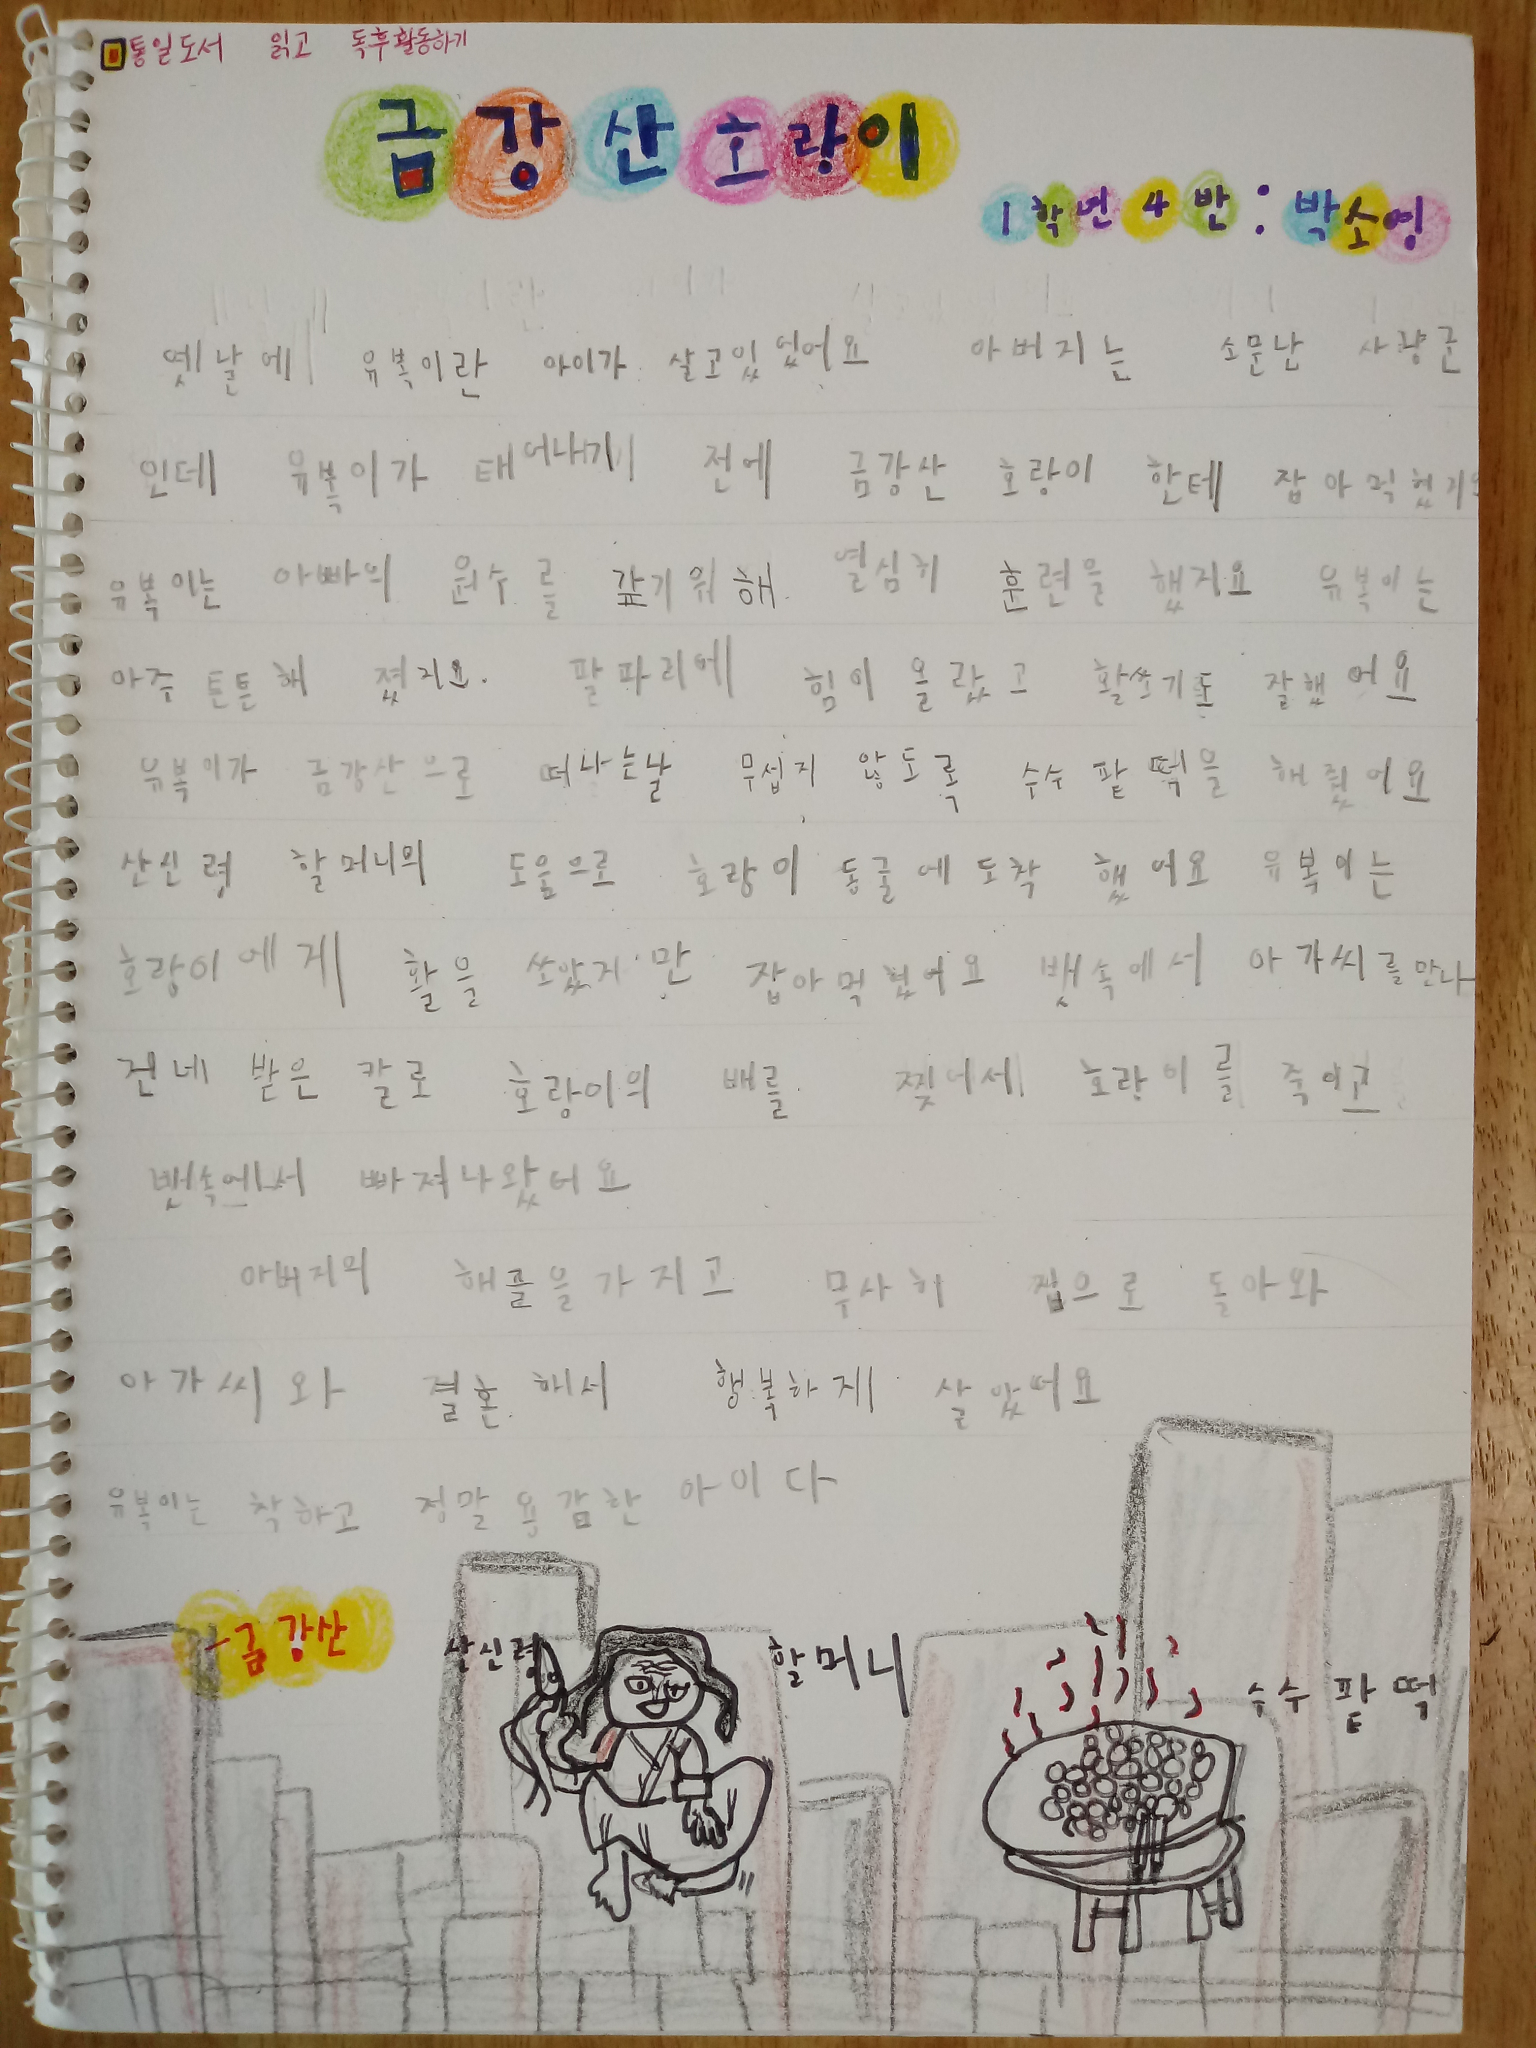 통일도서 읽고 독후활동하기
금강산호랑이
1학년4반 : 박소영
옛날에 유복이란 아이가 살고있었어요 아버지는 소문난 사냥꾼
인데 유복이가 태어나기 전에 금강산 호랑이 한테 잡아먹혔지요
유복이는 아빠의 원수를 갚기위해 열심히 훈련을 했지요 유복이는
아주 튼튼해 졌지요. 팔파리에 힘이 올랐고 활쏘기도 잘했어요
유복이가 금강산으로 떠나는날 무섭지 않도록 수수팥떡을 해줬어요
산신령 할머니의 도움으로 호랑이 동굴에 도착 했어요 유복이는
호랑이에게 활을 쏘았지만 잡아먹혔어요 뱃속에서 아가씨를만나
건네 받은 칼로 호랑이의 배를 찢어서 호랑이를 죽이고
뱃속에서 빠져나왔어요
아버지의 해골을가지고 무사히 집으로 돌아와
아가씨와 결혼해서 행복하게 살았어요
유복이는 착하고 정말용감한 아이다
금강산
산신령 할머니
수수팥떡